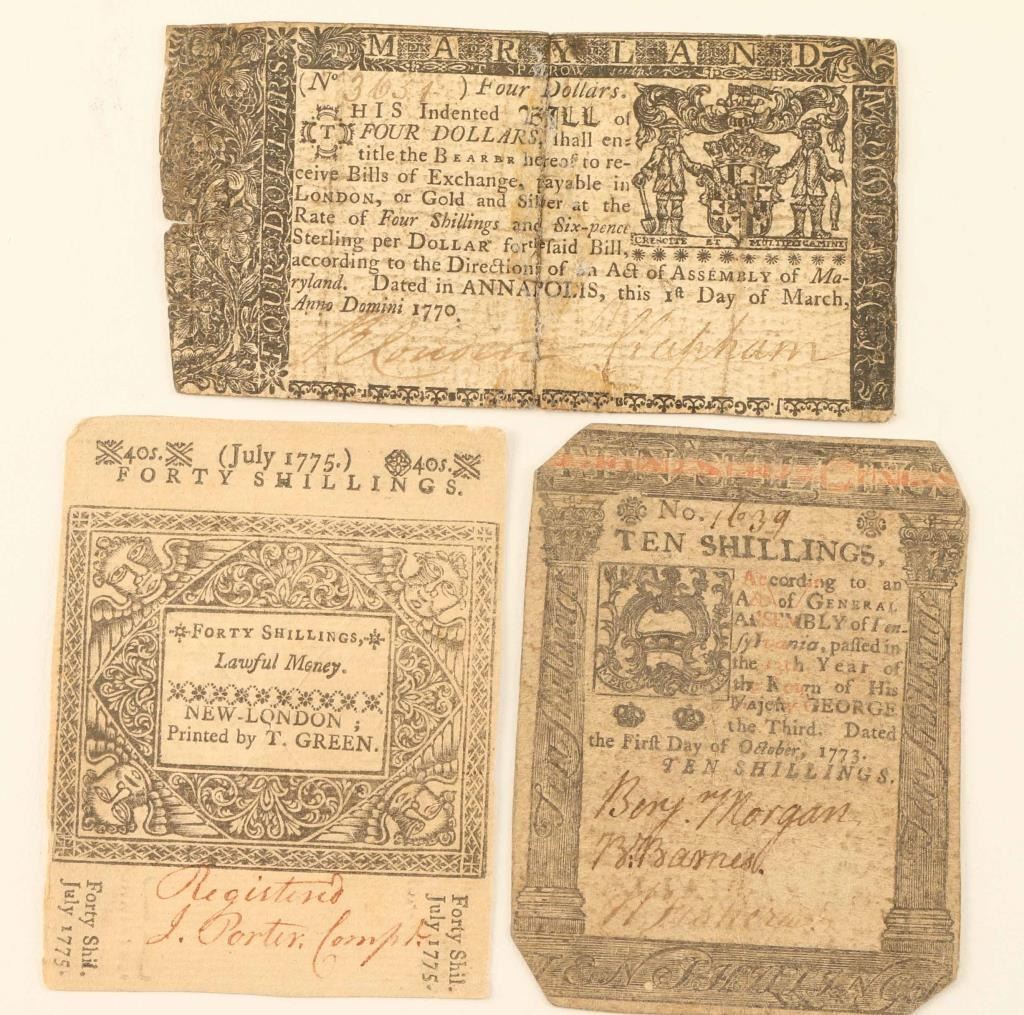 MARYLAND
T. SPARROW
FOUR DOLLARS
(No ) Four Dollars.
THIS Indented BILL of
FOUR DOLLARS, shall en-
title the BEARER hereof to re-
ceive Bills of Exchange, payable in
LONDON, or Gold and Silver at the
Rate of Four Shillings and Six-pence
Sterling per DOLLAR for the said Bill,
according to the Directions of an Act of ASSEMBLY of Ma-
ryland. Dated in ANNAPOLIS, this 1st Day of March,
Anno Domini 1770.
CRESCITE ET MULTIPLICAMINI
Clapham
40s. (July 1775.) 40s.
FORTY SHILLINGS.
FORTY SHILLINGS,
Lawful Money.
NEW-LONDON;
Printed by T. GREEN.
Registered
J. Porter, Compt.
Forty Shil.
July 1775.
Forty Shil.
July 1775.
No. 1639
TEN SHILLINGS,
According to an
Act of GENERAL
ASSEMBLY of Pen-
sylvania, passed in
the Year of
the Reign of His
Majesty GEORGE
the Third. Dated
the First Day of October, 1773.
TEN SHILLINGS.
Benj. Morgan
B. Barnes.
Ten Shillings
Ten Shillings
TEN SHILLINGS